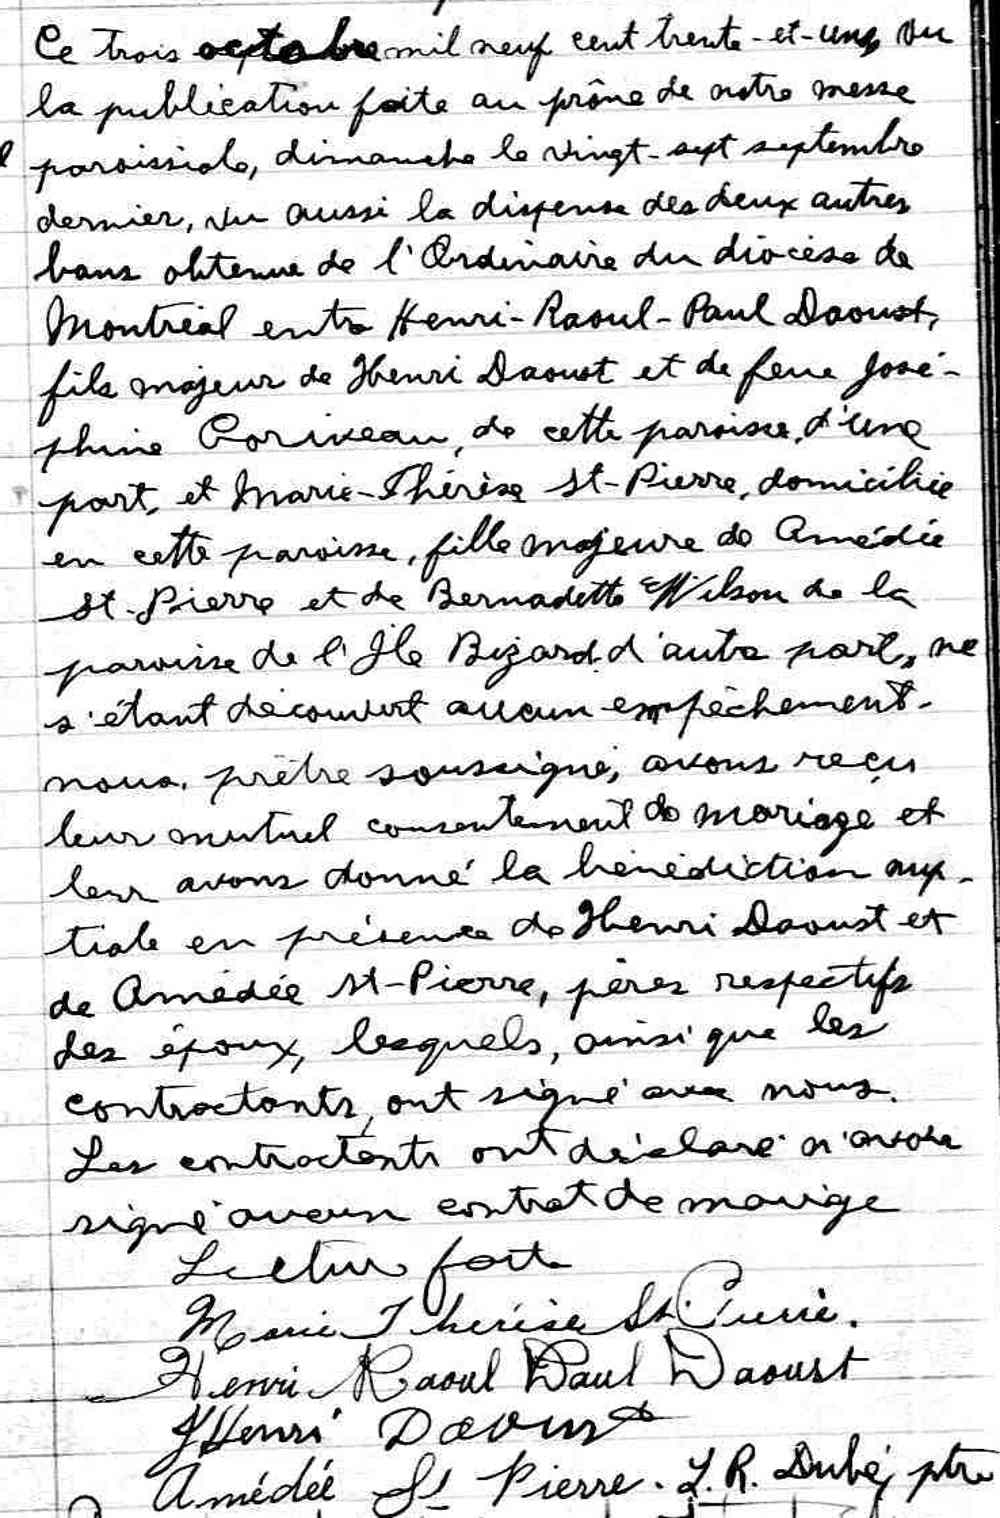 Ce trois octobre mil neuf cent trente-et-un, vu
la publication faite au prône de notre messe
paroissiale, dimanche le vingt-sept septembre
dernier, vu aussi la dispense des deux autres
bans obtenue de l'Ordinaire du diocèse de
Montréal entre Henri-Raoul-Paul Daoust,
fils majeur de Henri Daoust et de feue José-
phine Coriveau, de cette paroisse, d'une
part, et Marie-Thérèse St-Pierre, domiciliée
en cette paroisse, fille majeure de Amédée
St-Pierre et de Bernadette Wilson de la
paroisse de l'Ile Bizard d'autre part, ne
s'étant découvert aucun empêchement-
nous, prêtre soussigné, avons reçu
leur mutuel consentement de mariage et
leur avons donné la bénédiction nup-
tiale en présence de Henri Daoust et
de Amédée St-Pierre, pères respectifs
des époux, lesquels, ainsi que les
contractants, ont signé avec nous.
Les contractants ont déclaré n'avoir
signé aucun contrat de marige
Lecture faite
Marie Thérèse St. Pierre.
Henri Raoul Paul Daoust
JHenri Daoust
Amédée St Pierre. L. R. Dubé, ptre